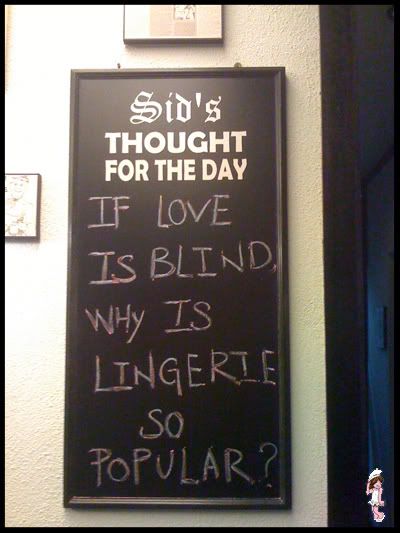 Sid's
THOUGHT
FOR THE DAY
IF LOVE
IS BLIND,
WHY IS
LINGERIE
SO
POPULAR?